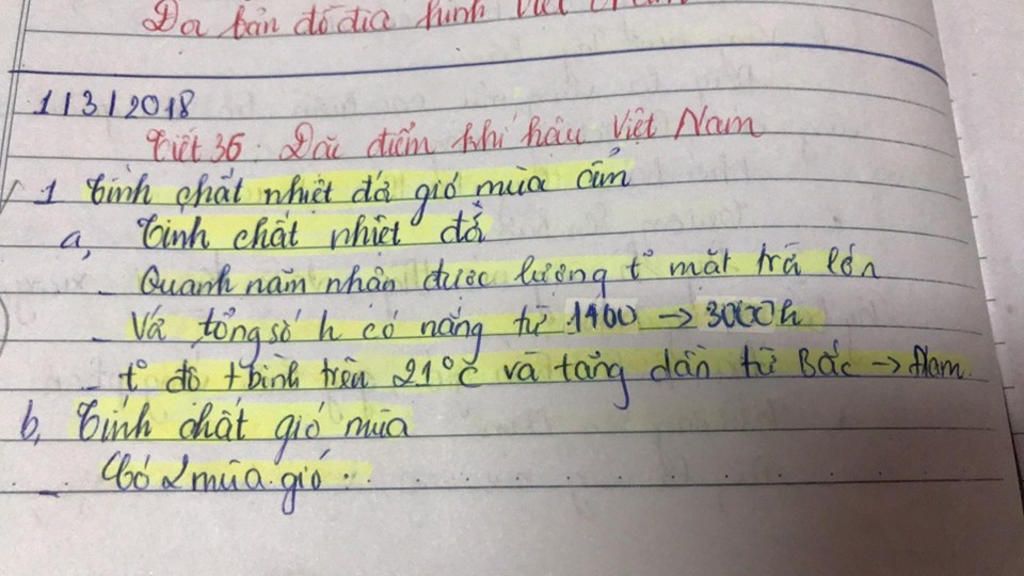 Đọc bản đồ địa hình Việt Nam
1/3/2018
Tiết 36. Đặc điểm khí hậu Việt Nam
1 Tính chất nhiệt đới gió mùa ẩm
a, Tính chất nhiệt đới
- Quanh năm nhận được lượng t° mặt trời lớn
- Và tổng số h có nắng từ 1400 → 3000h
- t° độ tbình trên 21°C và tăng dần từ Bắc → Nam
b, Tính chất gió mùa
- Có 2 mùa gió